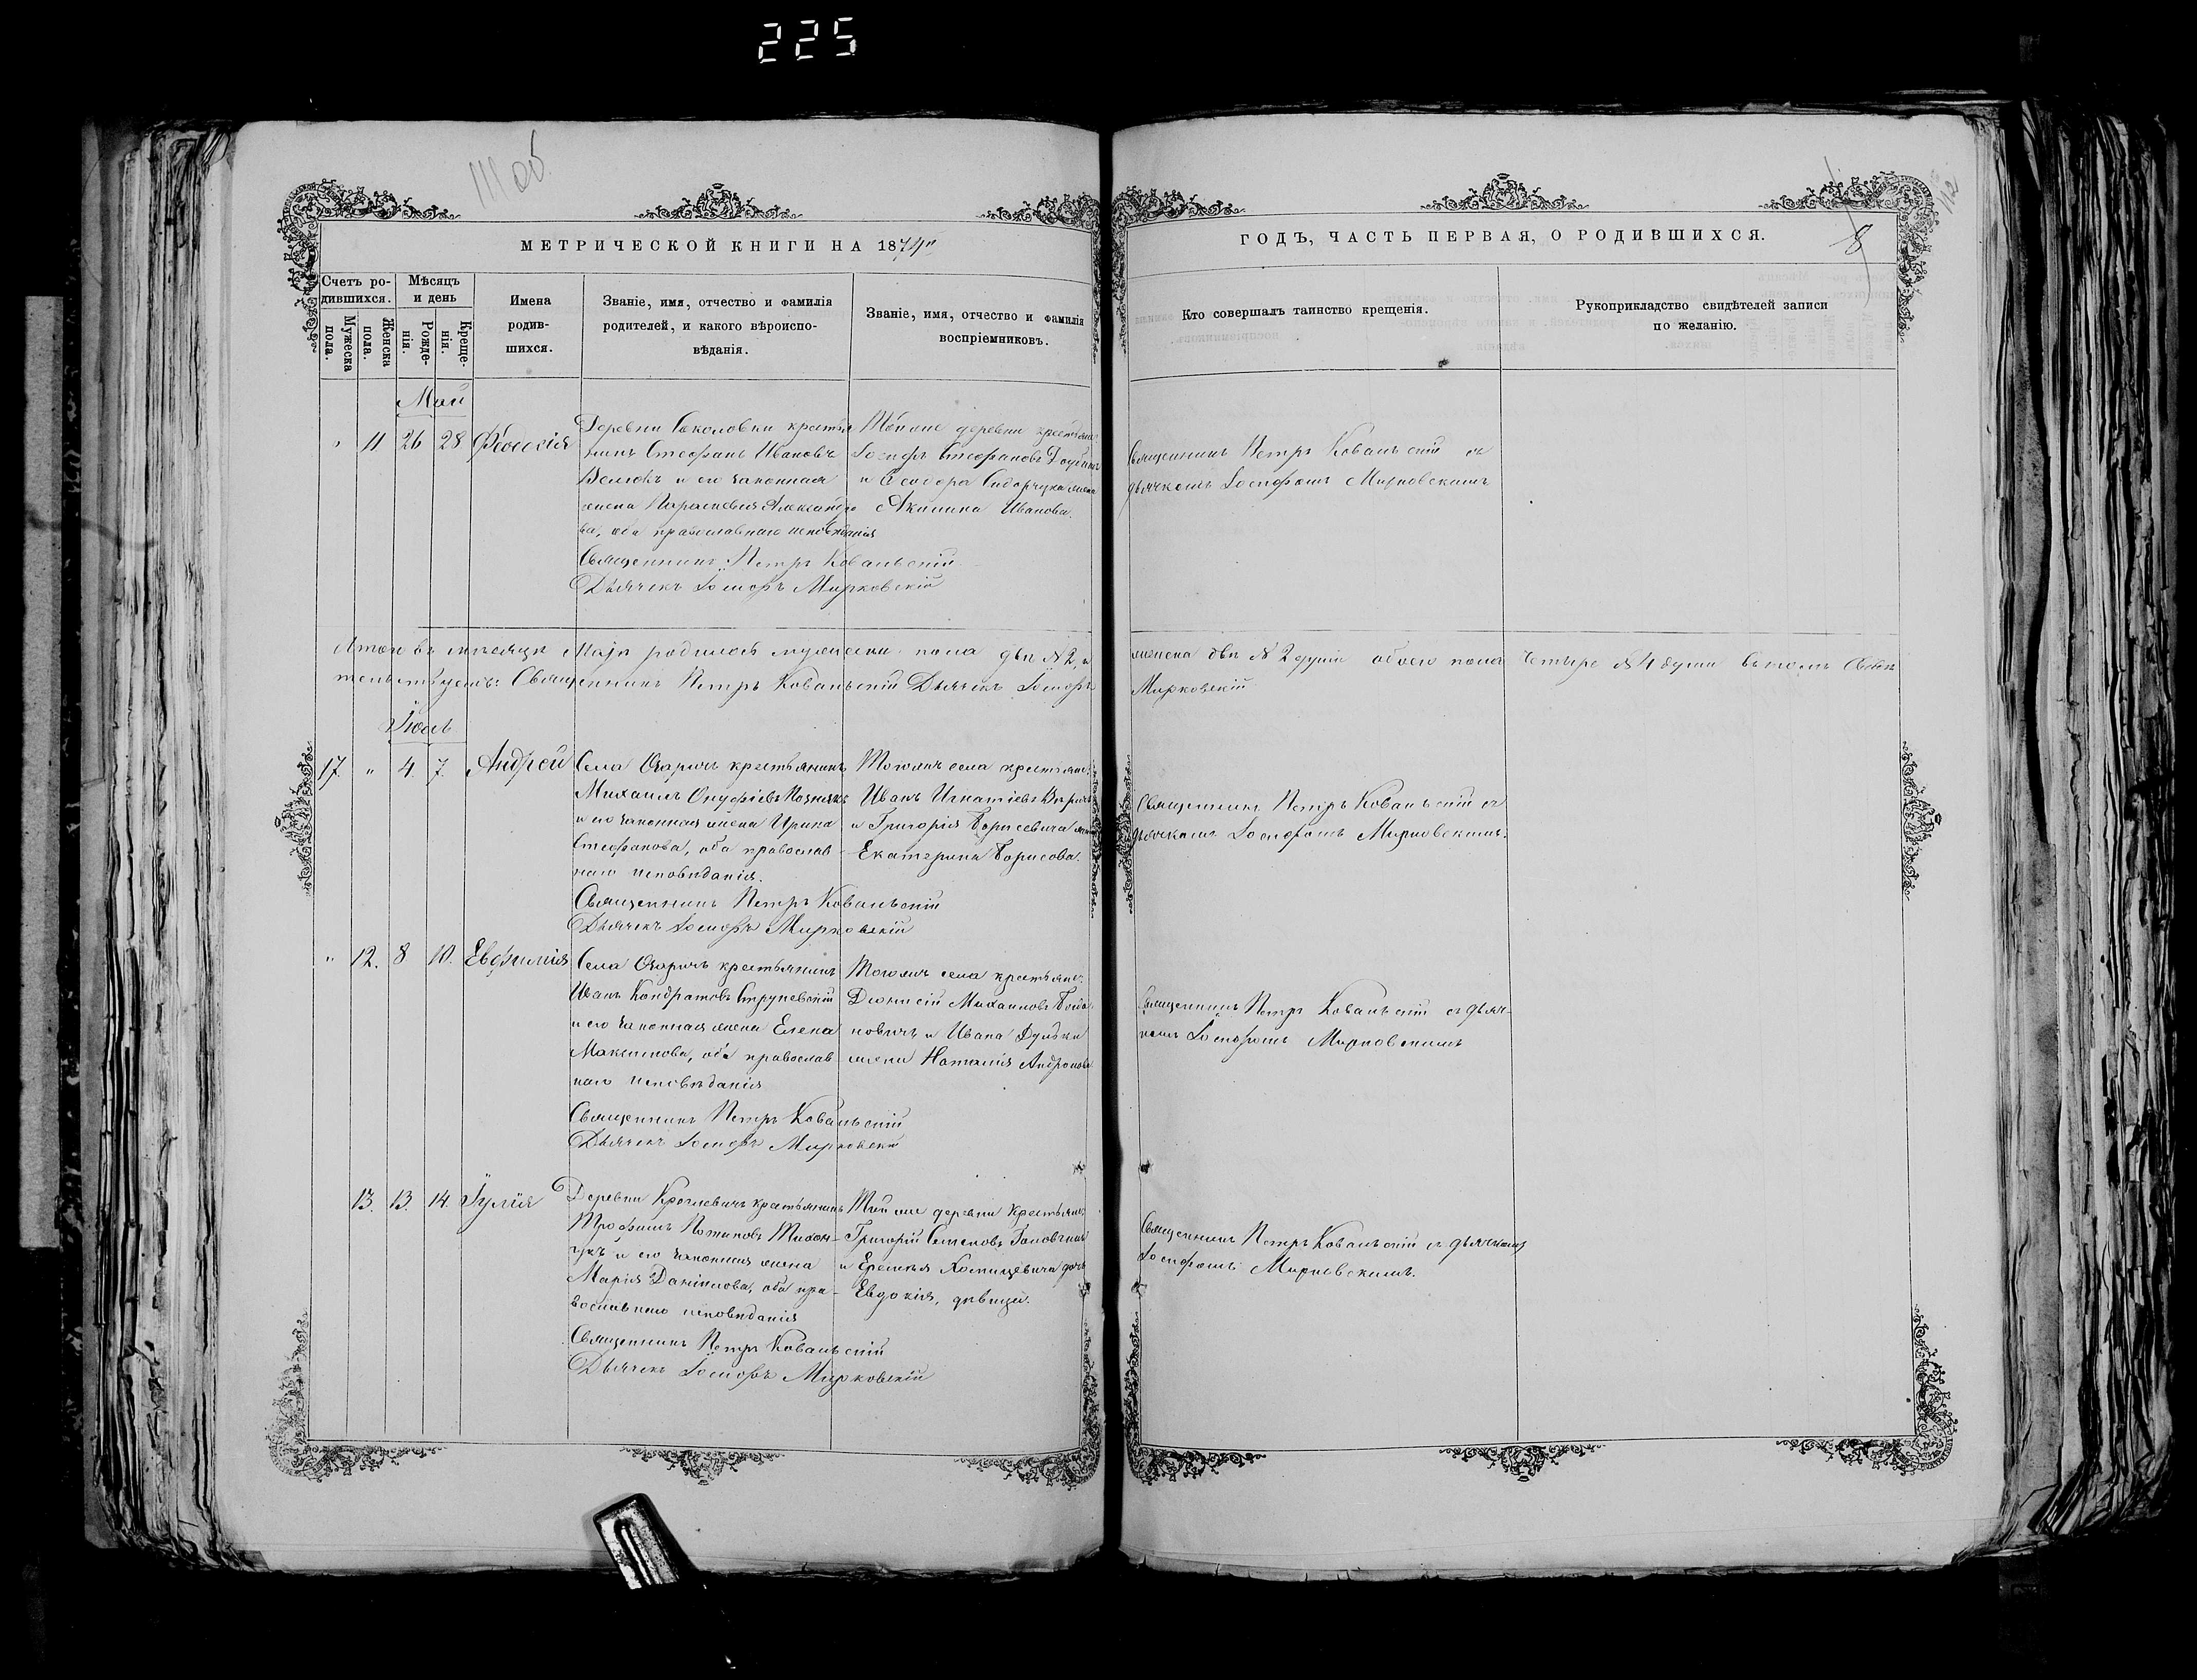 225
111 об.
112
МЕТРИЧЕСКОЙ КНИГИ НА 1874
ГОДЪ, ЧАСТЬ ПЕРВАЯ, О РОДИВШИХСЯ.
8
Счетъ родившихся.
Мужеска пола.
Женска пола.
Мѣсяцъ и день
Рожденія.
Крещенія.
Имена родившихся.
Званіе, имя, отчество и фамилія родителей, и какого вѣроисповѣданія.
Званіе, имя, отчество и фамилія воспріемниковъ.
Кто совершалъ таинство крещенія.
Рукоприкладство свидѣтелей записи по желанію.
Май
" 11 26 28 Феодосія
Деревни Соколовки крестья
нинъ Стефанъ Ивановъ
и его законная
жена Параскевія Александро
ва, оба православнаго исповѣданія
Той же деревни крестьяне:
Іосифъ Стефановъ
и Сидорчука жена
Акилина Иванова.
Священникъ Петръ Ковальскій съ
дьячкомъ Іосифомъ Мирковскимъ
Священникъ Петръ Ковальскій
Дьячекъ Іосифъ Мирковскій
Итого въ мѣсяцѣ Маѣ родилось мужеска пола двѣ № 2, и
женска двѣ № 2 души обоего пола четыре № 4 души въ томъ свидѣ
тельствуемъ: Священникъ Петръ Ковальскій Дьячекъ Іосифъ
Мирковскій
Іюль
17. " 4. 7. Андрей
Села Озаричъ крестьянинъ
Михаилъ Онуфріевъ Познякъ
и его законная жена Ирина
Стефанова, оба православ
наго исповѣданія.
Тогожъ села крестьяне:
Иванъ Игнатіевъ
и Григорія Борисевича жена
Екатерина Борисова.
Священникъ Петръ Ковальскій съ
дьячкомъ Іосифомъ Мирковскимъ.
Священникъ Петръ Ковальскій
Дьячекъ Іосифъ Мирковскій
" 12. 8 10. Евфимія
Села Озаричъ крестьянинъ
Иванъ Кондратовъ Струневскій
и его законная жена Елена
Максимова, оба православ
наго исповѣданія
Тогожъ села крестьяне:
Діонисій Михаиловъ Богда
новичъ и Ивана
жена Наталія Андронова
Священникъ Петръ Ковальскій съ дьяч-
комъ Іосифомъ Мирковскимъ
Священникъ Петръ Ковальскій
Дьячекъ Іосифъ Мирковскій
13. 13. 14. Іулія
Деревни Кроглевичъ крестьянинъ
Трофимъ Потаповъ Тихон-
чукъ и его законная жена
Марія Даніилова, оба пра-
вославнаго исповѣданія
Той же деревни крестьяне:
Григорій Семеновъ
и Еремѣя дочь
Евдокія, дѣвица.
Священникъ Петръ Ковальскій съ дьячкомъ
Іосифомъ Мирковскимъ.
Священникъ Петръ Ковальскій
Дьячекъ Іосифъ Мирковскій